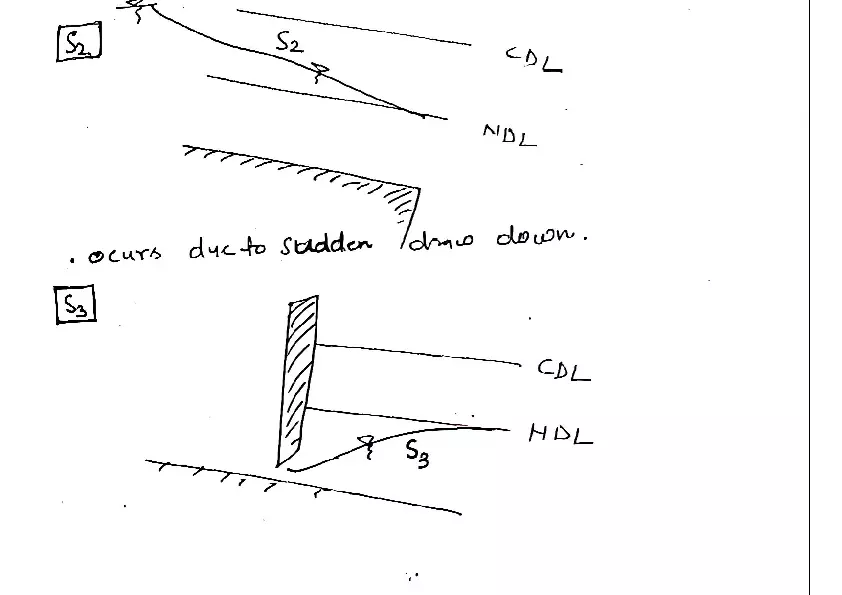 S2
S2
CDL
NDL
. ocurs due to sudden draw down.
S3
CDL
NDL
S3